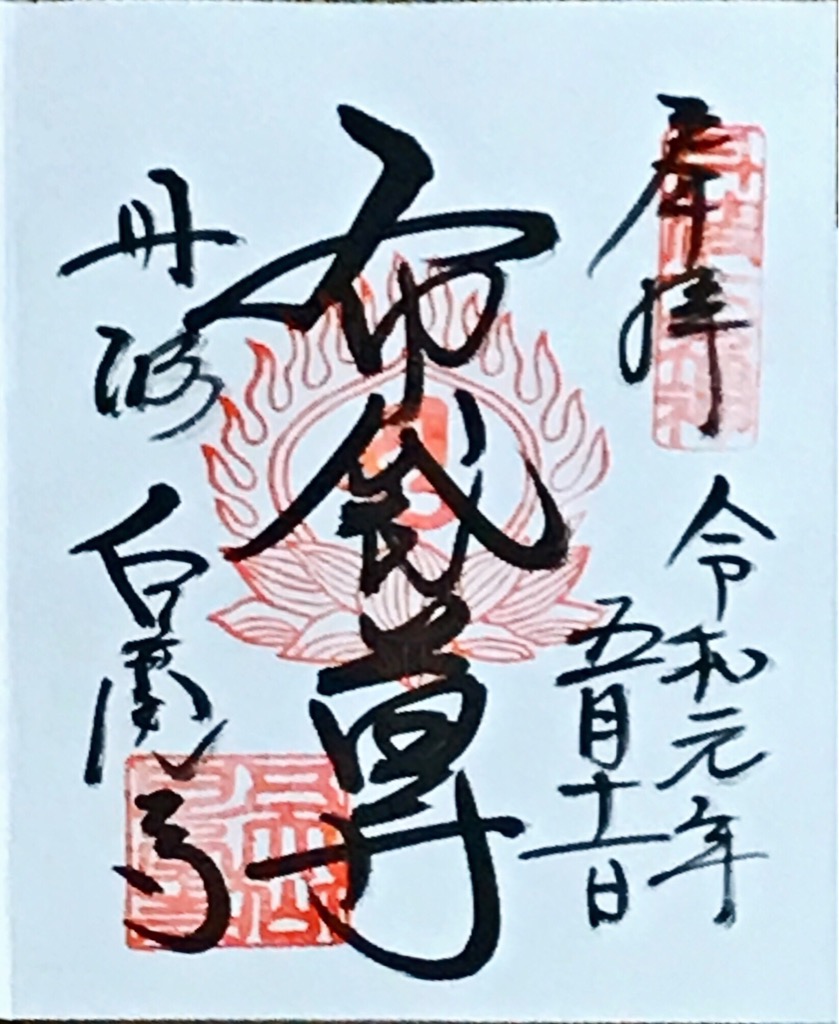 奉拝
令和元年
五月十一日
布袋尊
丹波
白毫寺